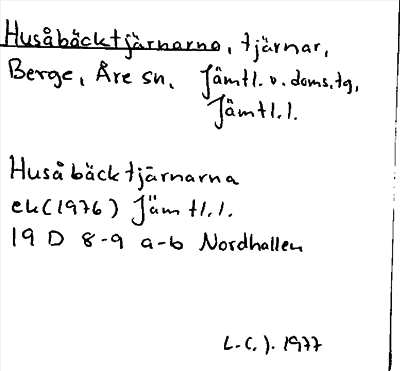 Husåbäcktjärnarna, tjärnar,
Berge, Åre sn, Jämtl. v. doms.tg,
Jämtl.l.
Husåbäcktjärnarna
ek(1976) Jämtl.l.
19 D 8-9 a-b Nordhallen
L-C. J. 1977